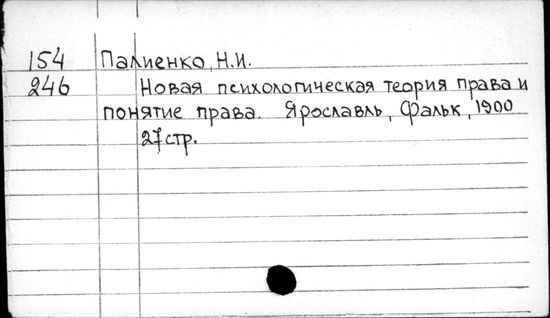 154 Палиенко, Н.И.
246 Новая психологическая теория права и
понятие права. Ярославль, Фальк, 1900
27 стр.